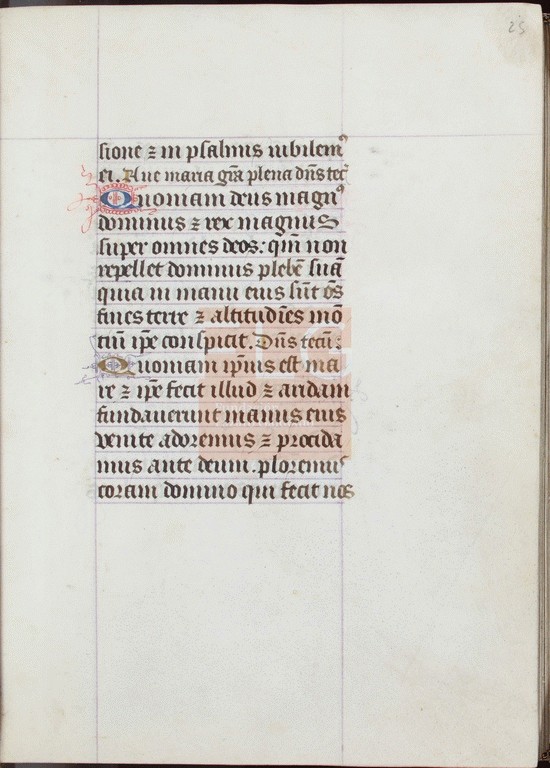 25
sione ⁊ in psalmis iubilemꝰ
ei. Aue maria gr̃a plena dñs tec̃
Quoniam deus magnꝰ
dominus ⁊ rex magnus
super omnes deos: qm̃ non
repellet dominus plebẽ suã
quia in manu eius sũt õs
fines terre ⁊ altitudĩes mõ
tiũ ip̃e conspicit. Dñs tecũ:
Quoniam ip̃ius est ma
re ⁊ ip̃e fecit illud ⁊ aridam
fundauerunt manus eius
venite adoremus ⁊ procida
mus ante deum. ploremus
coram domino qui fecit nos